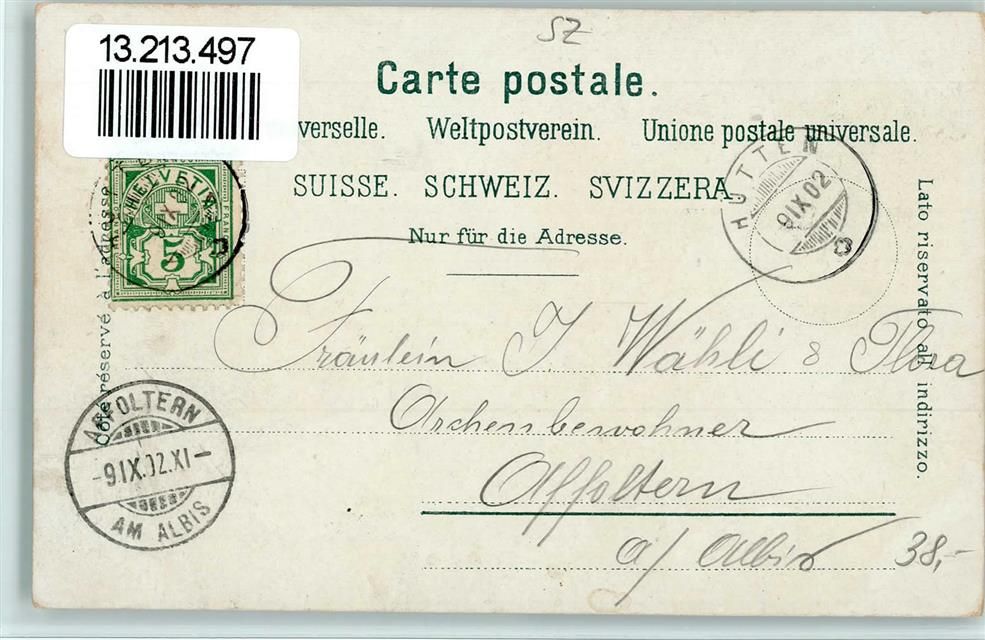 SZ
13.213.497
Carte postale.
verselle. Weltpostverein. Unione postale universale.
SUISSE. SCHWEIZ. SVIZZERA.
Nur für die Adresse.
HELVETIA
FRANCO
5
HUTTEN
9 IX 02
Côté réservé à l'adresse
Lato riservato all' indirizzo.
Fräulein J. Wähli & Flora
Archenbewohner
Affoltern
a/ Albis
38,-
AFFOLTERN
-9.IX.02.XI-
AM ALBIS